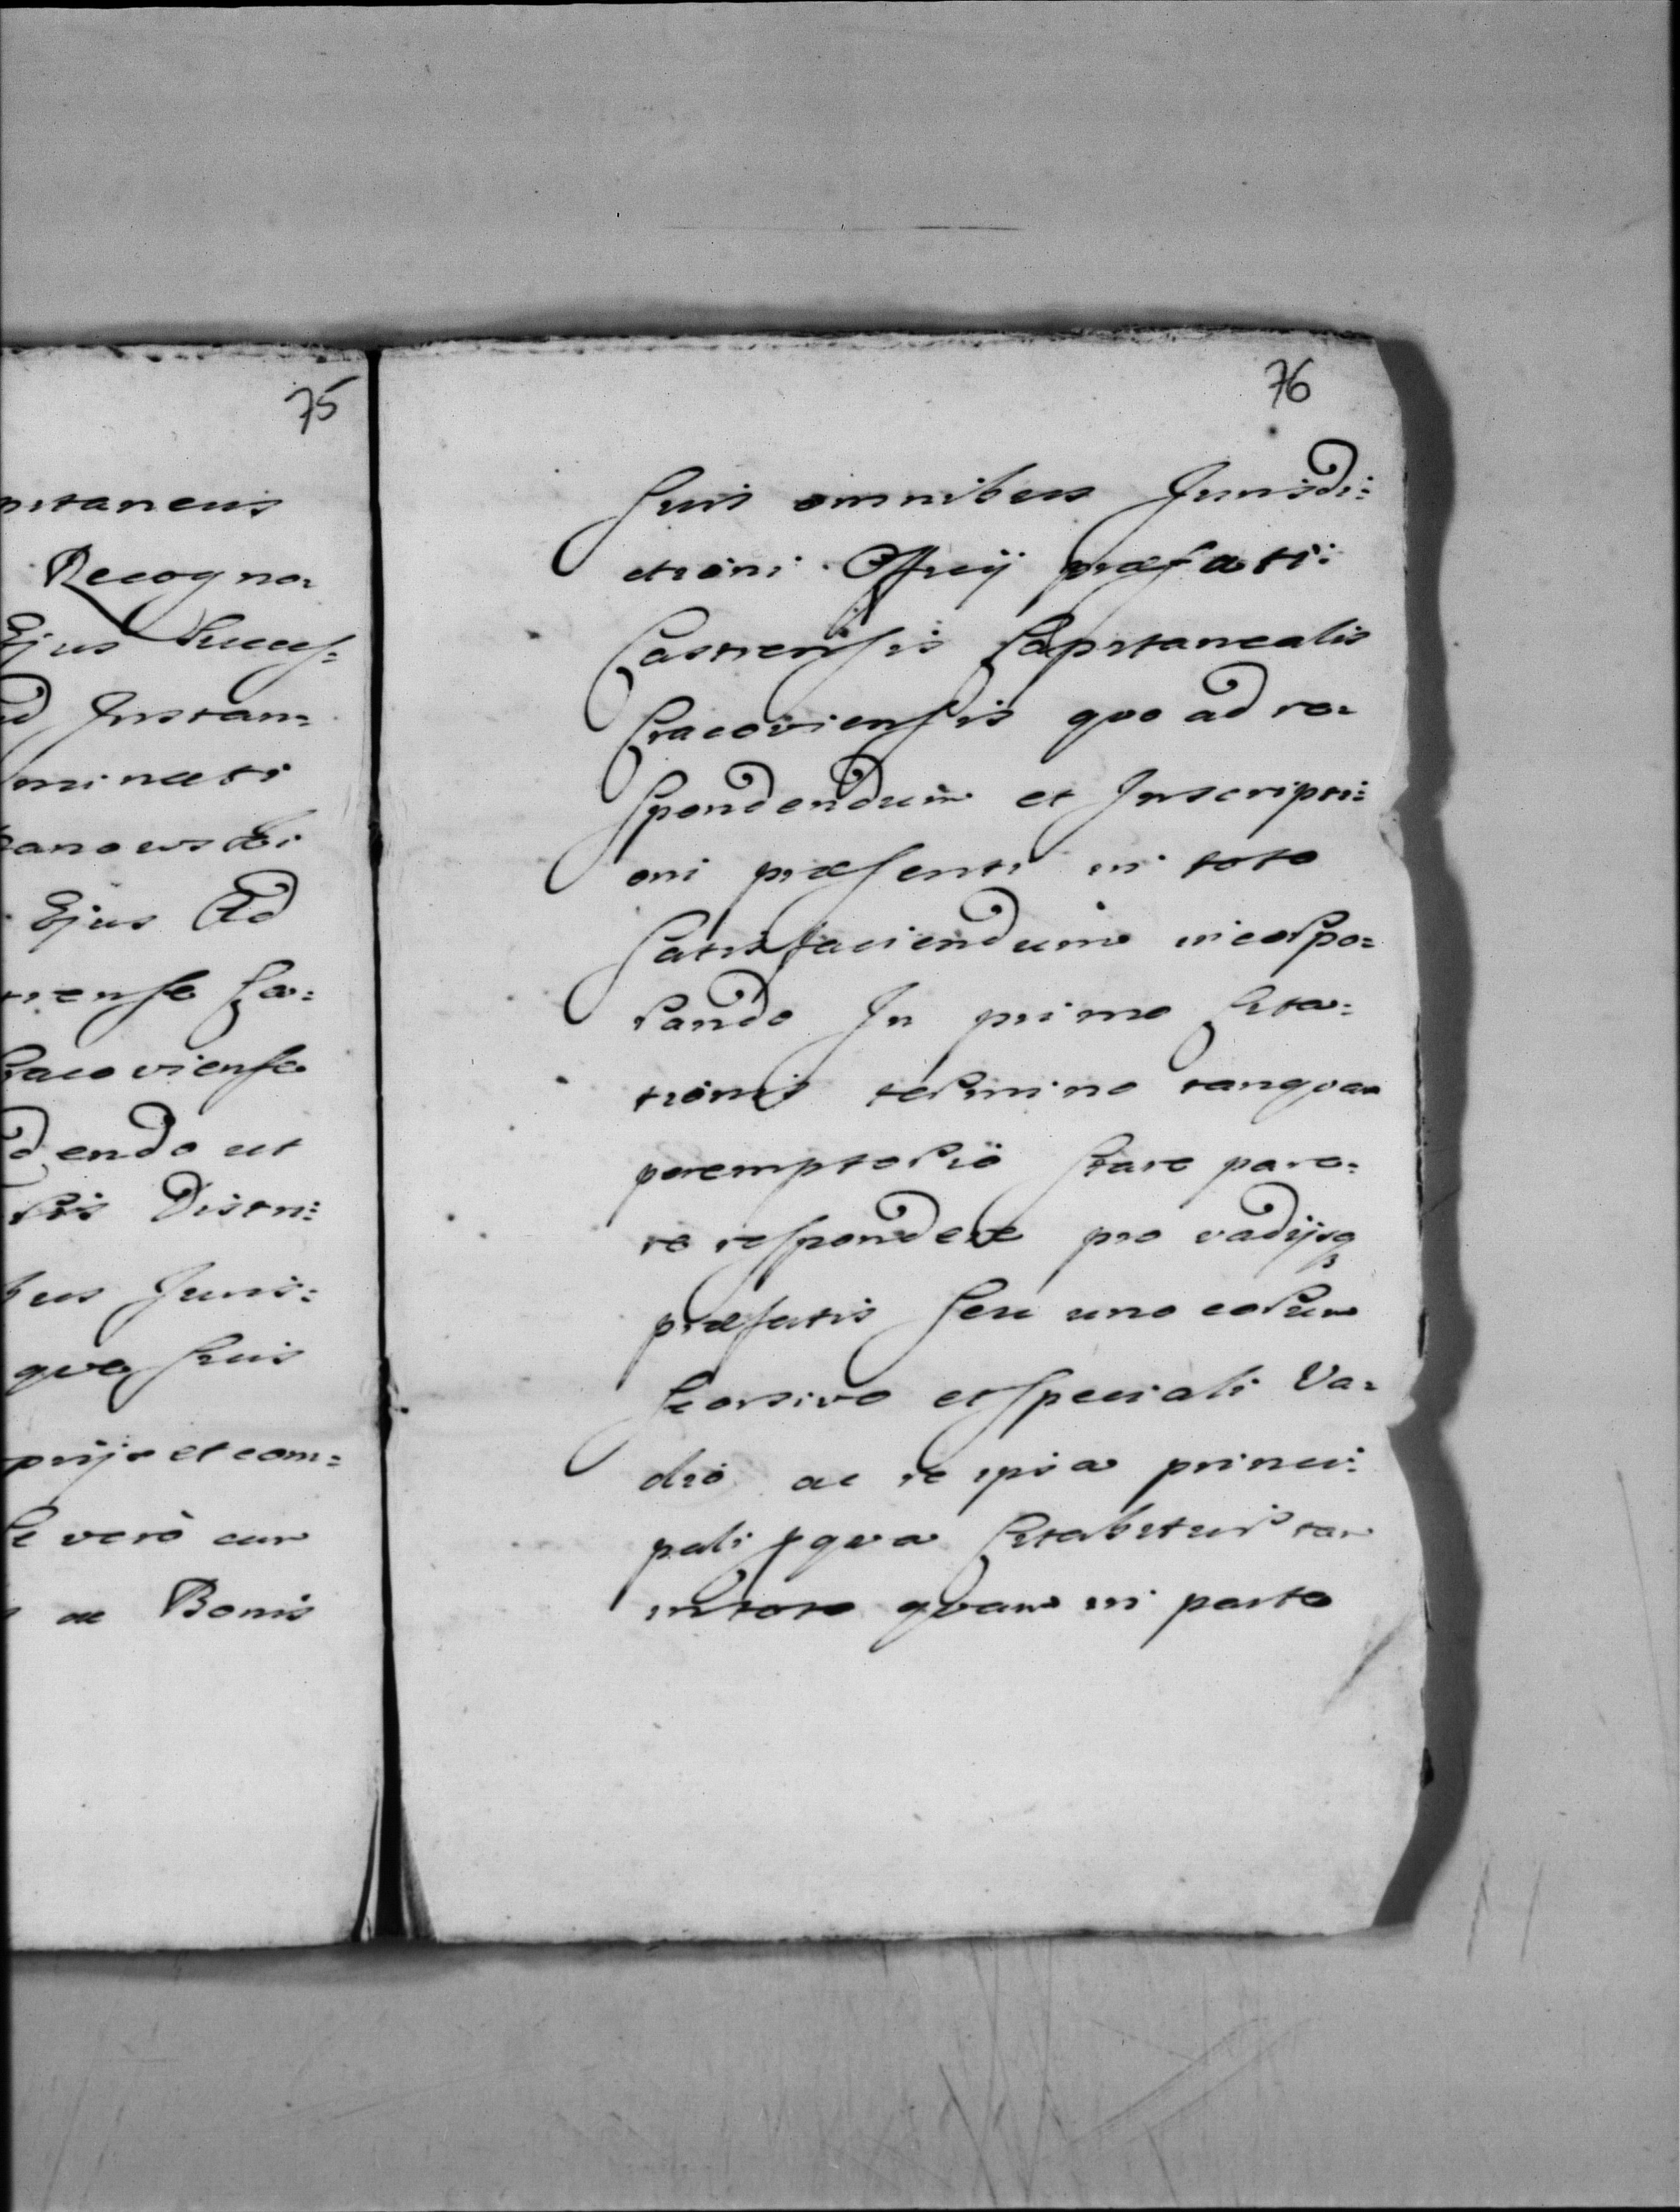 75
pitaneus
Recogno=
Ejus Success=
d Instan=
minati
anowski
Ejus Ad
trense Ca=
Cracoviense
dendo ut
ris Distri=
bus Juris=
que suis
prijs et com=
Se verò cum
ac Bonis
76
suis omnibus Jurisdi=
ctioni Officij præfati
Castrensis Capitanealis
Cracoviensis quo ad re=
spondendum et Inscripti=
oni præsenti in toto
satisfaciendum incorpo=
rando In primo Cita=
tionis termino tanquam
peremptorio stare pare=
re respondere pro vadijsq
præfatis seu uno eorum
seorsivo et speciali Va=
dio ac re ipsa princi=
pali p qua Citabitur tam
in toto quam in parte